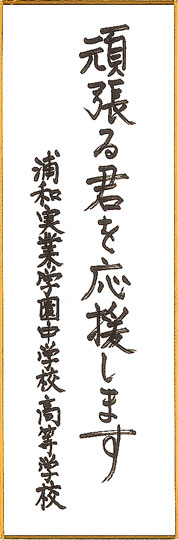 頑張る君を応援します
浦和実業学園中学校 高等学校